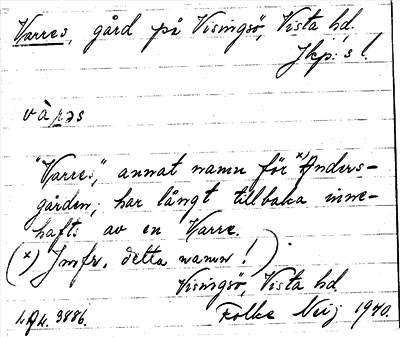 Varres, gård på Visingsö, Vista hd.
Jkp:s l.
vàrəs
"Varres", annat namn för x) Anders-
gården, har långt tillbaka inne-
hafts av en Varre.
(x) Jmfr. detta namn!)
Visingsö, Vista hd
3886. Folke Neij 1940.